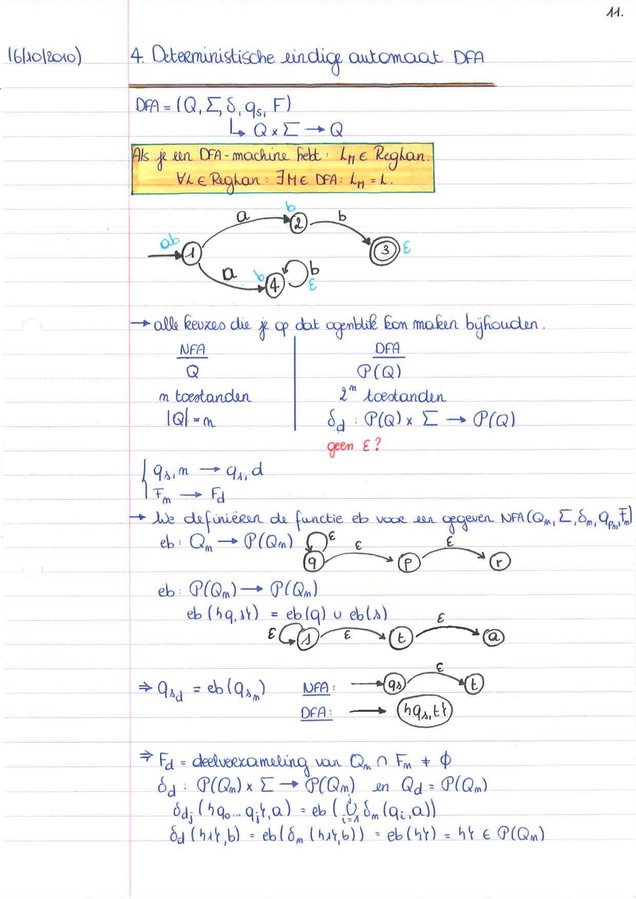 11.
16/10/2010) 4. Deterministische eindige automaat DFA
DFA = (Q, Σ, δ, qs, F)
↳ Q × Σ → Q
Als je een DFA-machine hebt: L_M ∈ Reglan.
∀L ∈ Reglan: ∃M ∈ DFA: L_M = L.
a b b
ab 1 2 3 ε
a b 4 b
ε
→ alle keuzes die je op dat ogenblik kon maken bijhouden.
NFA DFA
Q P(Q)
n toestanden 2^n toestanden
|Q| = n δ_d : P(Q) × Σ → P(Q)
geen ε?
{ q_s,n → q_s,d
F_n → F_d
→ We definiëren de functie eb voor een gegeven NFA(Q_n, Σ, δ_n, q_sn, F_n)
eb: Q_n → P(Q_n) ε ε ε
q p r
eb: P(Q_n) → P(Q_n)
eb({q,s}) = eb(q) ∪ eb(s)
ε s ε t ε a
⇒ q_sd = eb(q_sn) NFA: → qs ε t
DFA: → {qs,t}
⇒ F_d = deelverzameling van Q_n ∩ F_n ≠ ϕ
δ_d : P(Q_n) × Σ → P(Q_n) en Q_d = P(Q_n)
δ_dj ({q0...qj}, a) = eb(∪ i=1 j δ_n(qi, a))
δ_d({1}, b) = eb(δ_n({1}, b)) = eb({}) = {} ∈ P(Q_n)